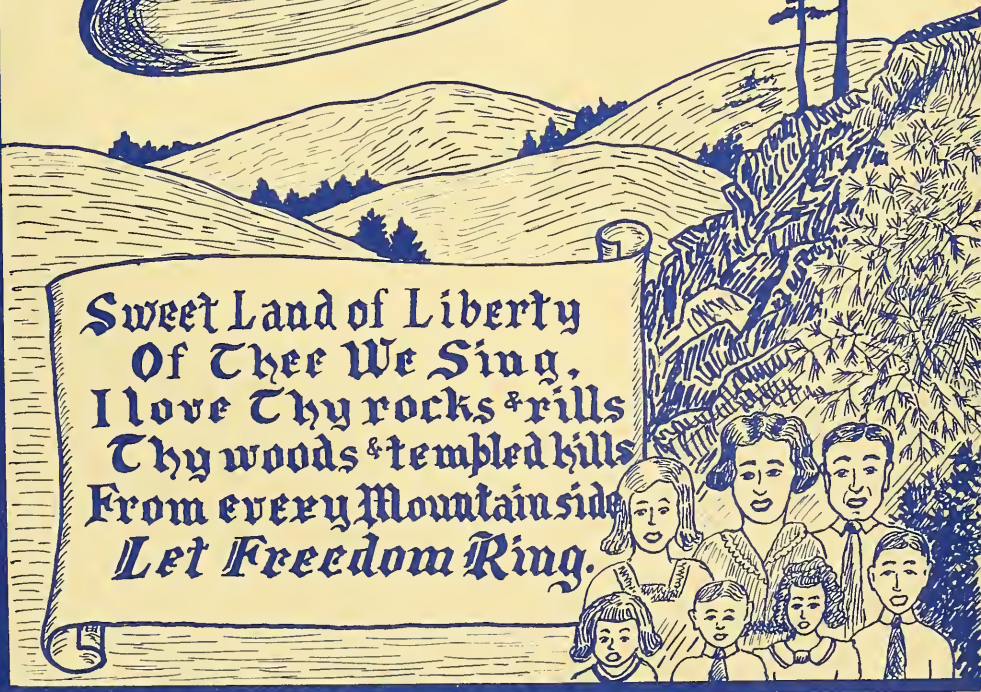 Sweet Land of Liberty
Of Thee We Sing,
I love Thy rocks & rills
Thy woods & templed hills
From every Mountainside
Let Freedom Ring.